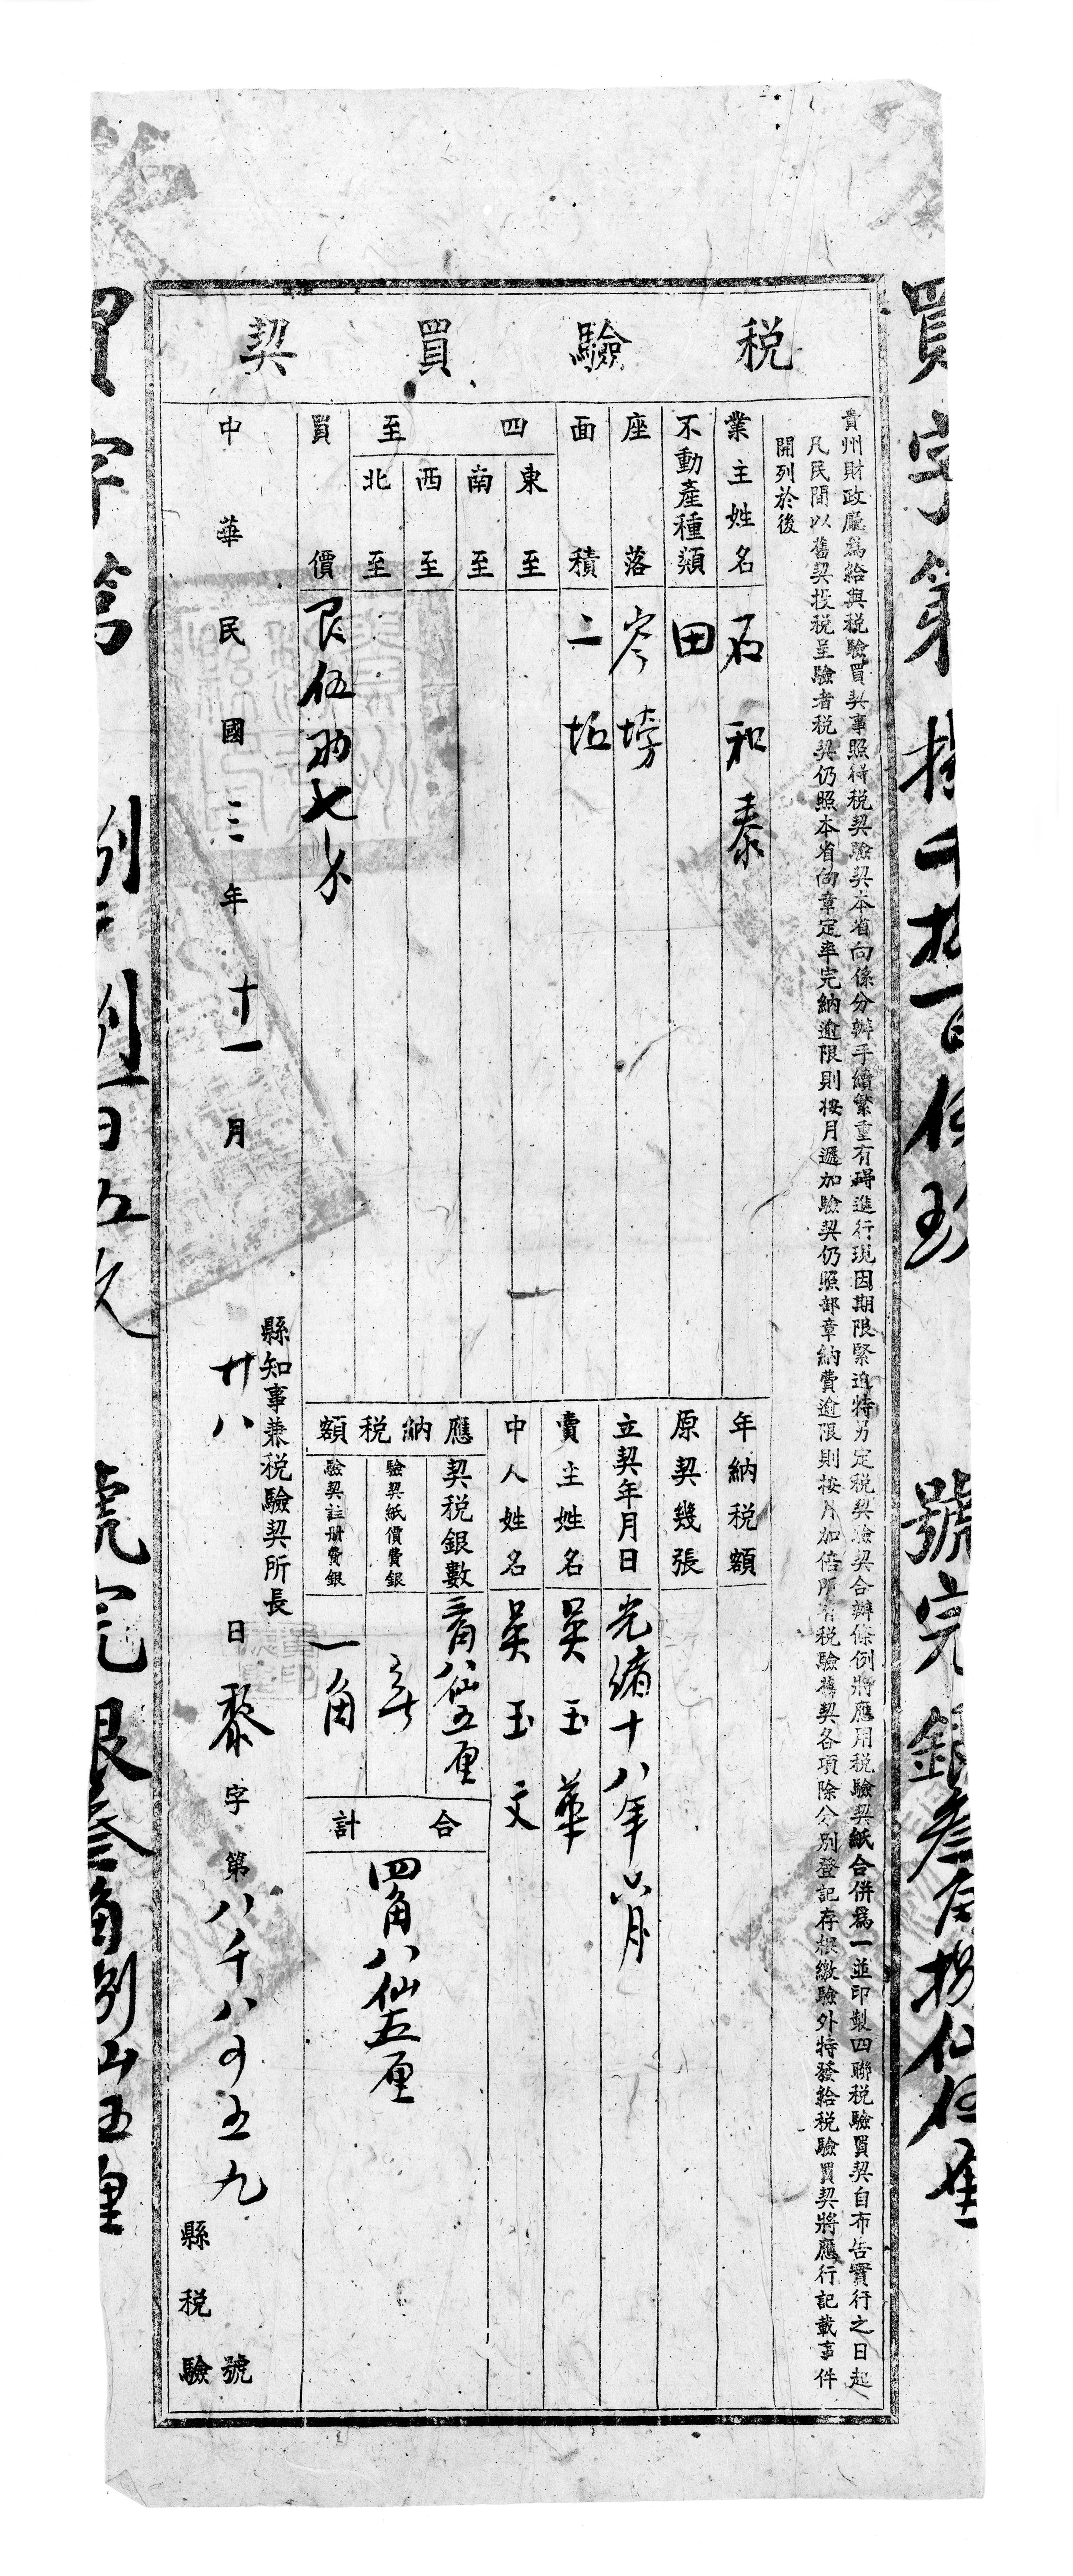 稅驗買契
買字第捌千捌百伍玖號完銀叁角捌仙伍厘
貴州財政廳為給與稅驗買契事照得稅契驗契本省向係分辦手續繁重有碍進行現因期限緊迫特另定稅契驗契合辦條例將應用稅驗契紙合併為一並印製四聯稅驗買契自布告實行之日起
凡民間以舊契投稅呈驗者稅契仍照本省向章定率完納逾限則按月遞加驗契仍照部章納費逾限則按月加倍所有稅驗舊契各項除分別登記存根繳驗外特發給稅驗買契將應行記載事件
開列於後
業主姓名 石和泰
不動產種類 田
座落 岑塝
面積 二坵
四至
東至
南至
西至
北至
買價 艮伍
年納稅額
原契幾張
立契年月日 光緒十八年六月
賣主姓名 吳玉華
中人姓名 吳玉文
應納稅額
契稅銀數 三角八仙五厘
驗契紙價費銀
驗契註册費銀 一角
合計 四角八仙五厘
縣知事兼稅驗契所長
中華民國三年十一月廿八日黎字第八千八百五九號
縣稅驗
買字第捌千捌百五九號完銀叁角捌仙五厘